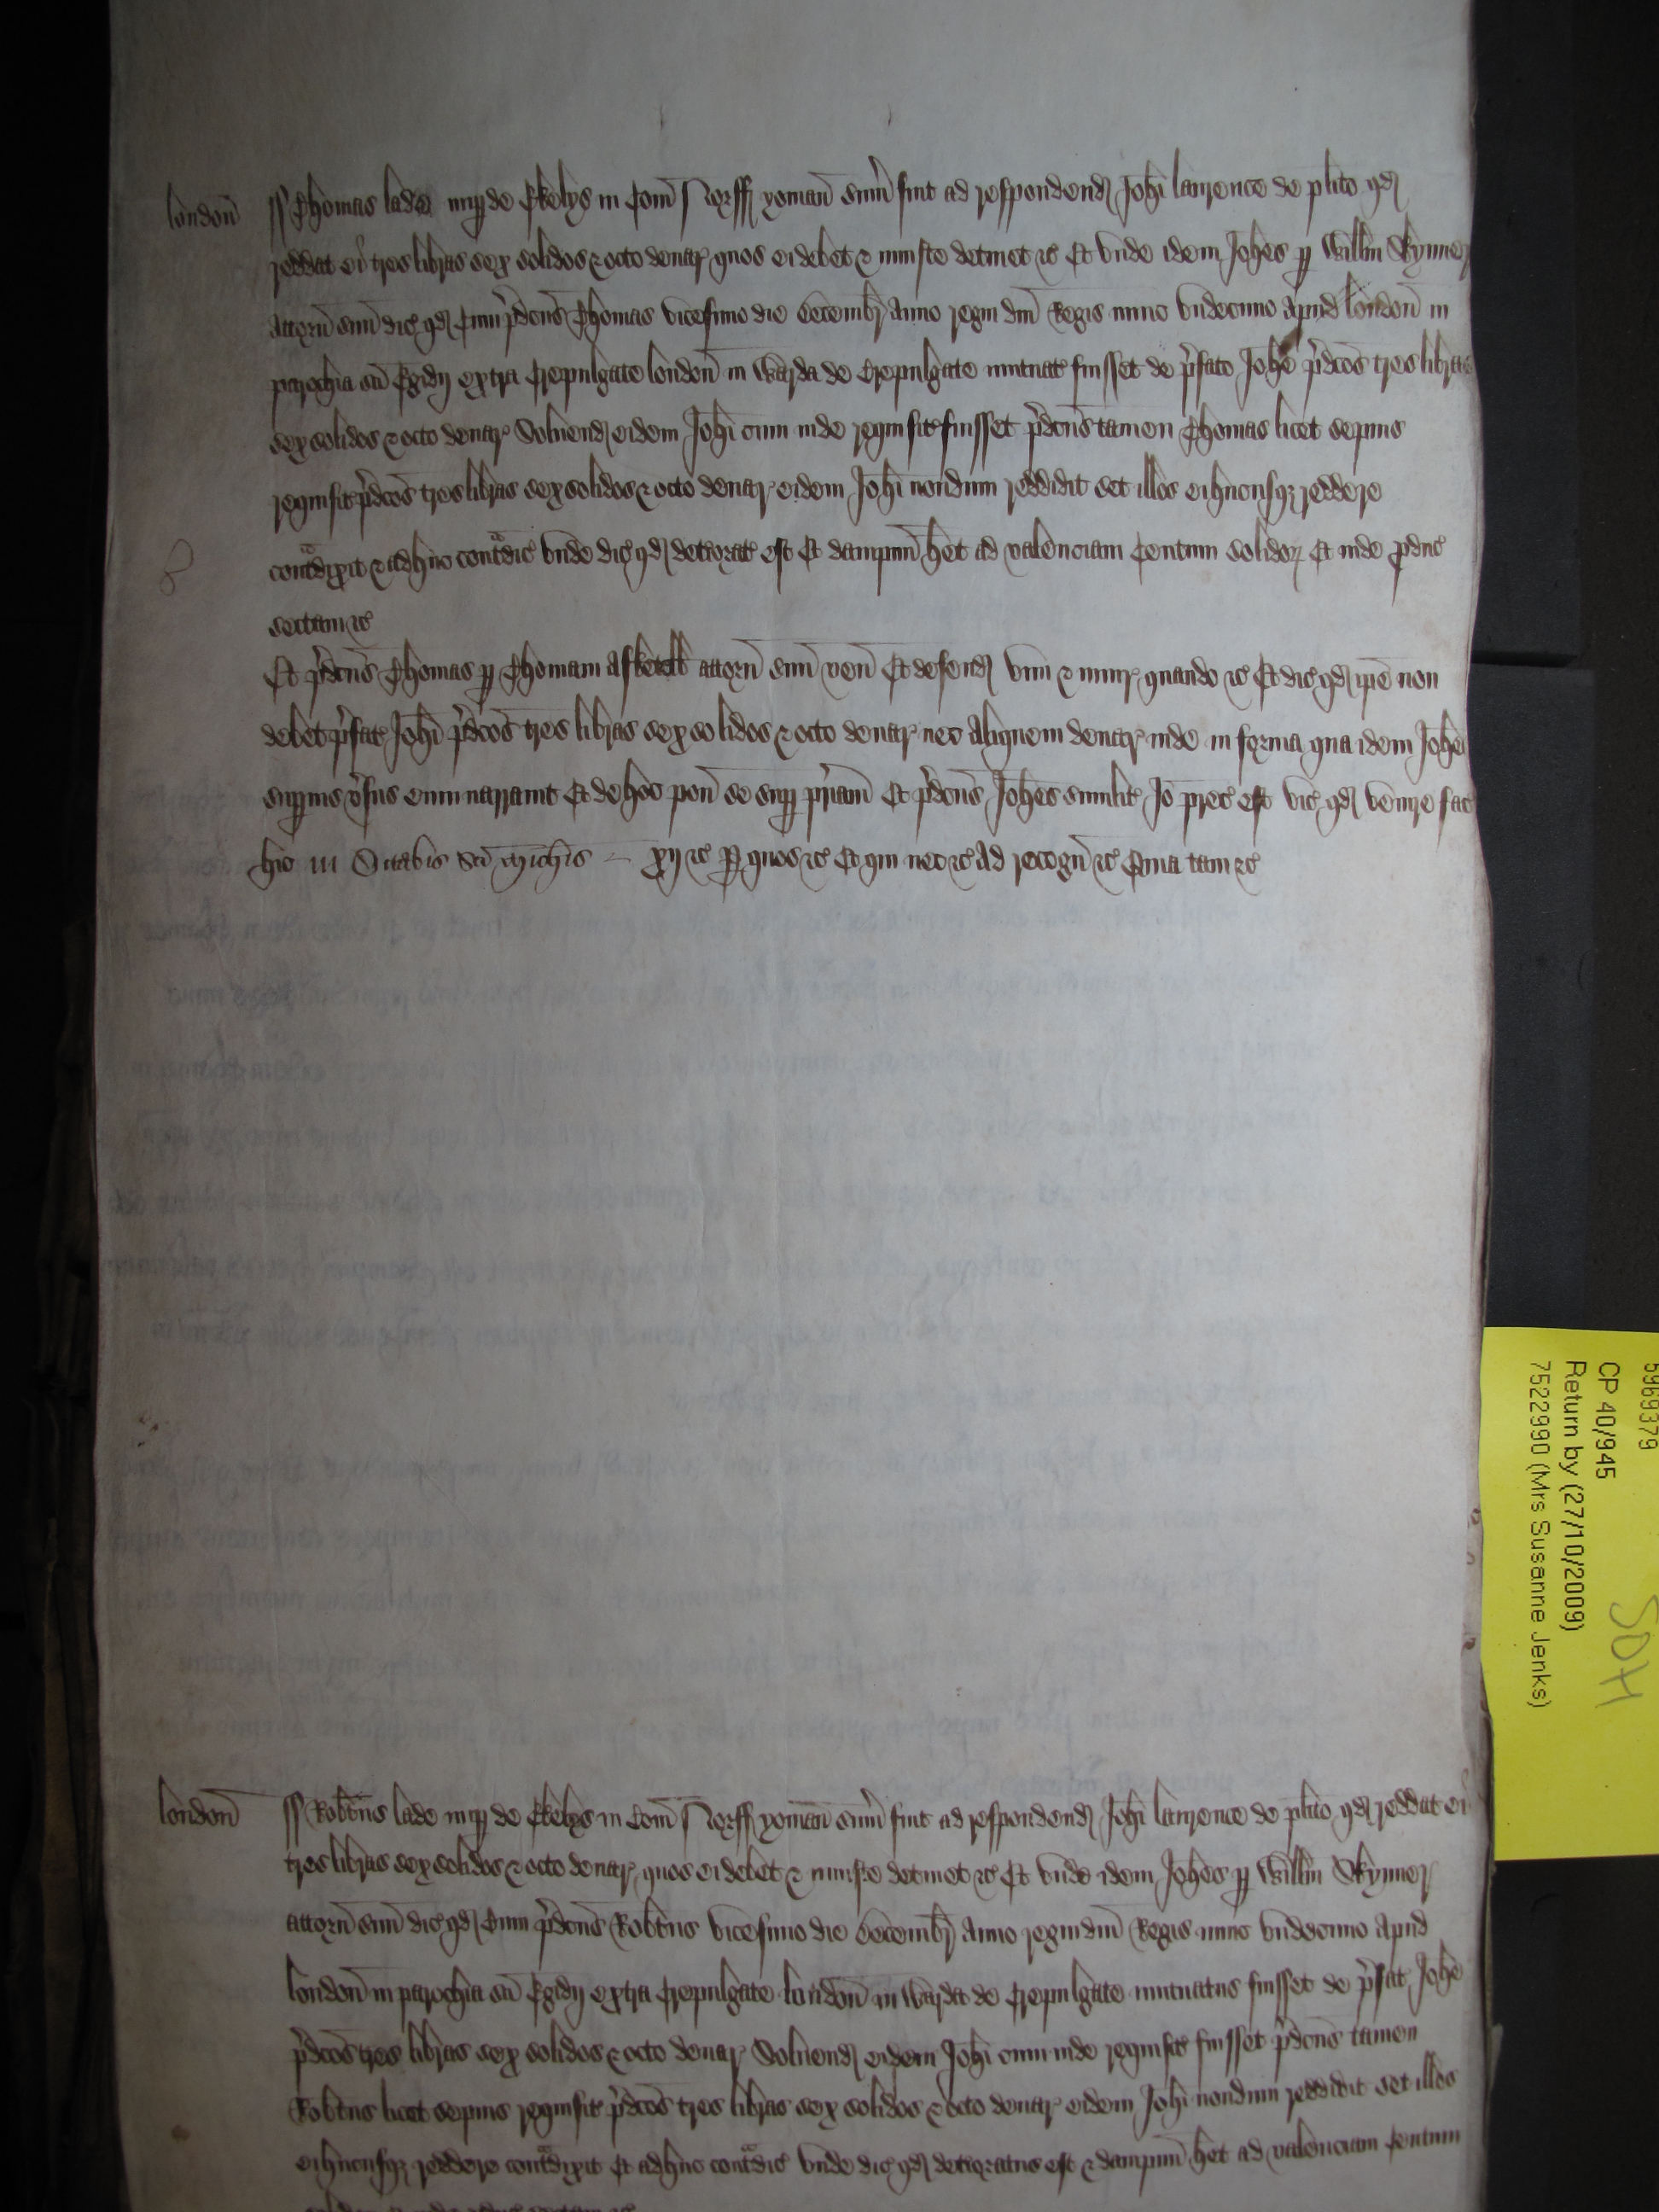 london
ss Thomas lade nup de Ekelys in Com Norff yoman sum fuit ad respondend Johi laurence de plito qd
reddat ei tres libras sex solidos & octo denar quos ei debet & iniuste detinet &c Et unde idem Johes p Willm Skynner
attorn suu dic qd Cum pdcus Thomas vicesimo die Decembr Anno regni dni Regis nunc undecimo apud london in
parochia sci Egidij extra Crepulgate london in Warda de Crepulgate mutuat fuisset de pfato Johe pdcos tres libras
sex solidos & octo denar Soluend eidem Johi cum inde requisit fuisset pdcus tamen Thomas licet sepius
requisit pdcos tres libras sex solidos & octo denar eidem Johi nondum reddidit set illos ei hucusqz reddere
contradixit & adhuc contradic Unde dic qd deteriorat est Et dampnu het ad valenciam Centum solidoz Et inde pduc
sectam &c
Et pdcus Thomas p Thomam Asketell attorn suu ven Et defend vim & iniur quando &c Et dic qd ipe non
debet pfat Johi pdcos tres libras sex solidos & octo denar nec aliquem denar inde in forma qua idem Johes
supius vsus eum narrauit Et de hoc pon se sup priam Et pdcus Johes similit Jo prec est vic qd venire fac
hic in Octabis sci Michis – xij &c P quos &c Et qui nec &c Ad recogn &c Quia tam &c
london
ss Robtus lade nup de Ekelys in Com Norff yoman sum fuit ad respondend Johi laurence de plito qd reddat ei
tres libras sex solidos & octo denar quos ei debet & iniuste detinet &c Et unde idem Johes p Willm Skynner
attorn suu dic qd Cum pdcus Robtus vicesimo die Decembr Anno regni dni Regis nunc undecimo Apud
london in parochia sci Egidij extra Crepulgate london in Warda de Crepulgate mutuatus fuisset de pfat Johe
pdcos tres libras sex solidos & octo denar Soluend eidem Johi cum inde requisit fuisset pdcus tamen
Robtus licet sepius requisit pdcos tres libras sex solidos & octo denar eidem Johi nondum reddidit set illos
ei hucusqz reddere contradixit Et adhuc contradic Unde dic qd deterioratus est & dampnu het ad valenciam Centum
5969379
CP 40/945
Return by (27/10/2009)
7522990 (Mrs Susanne Jenks)
SDH